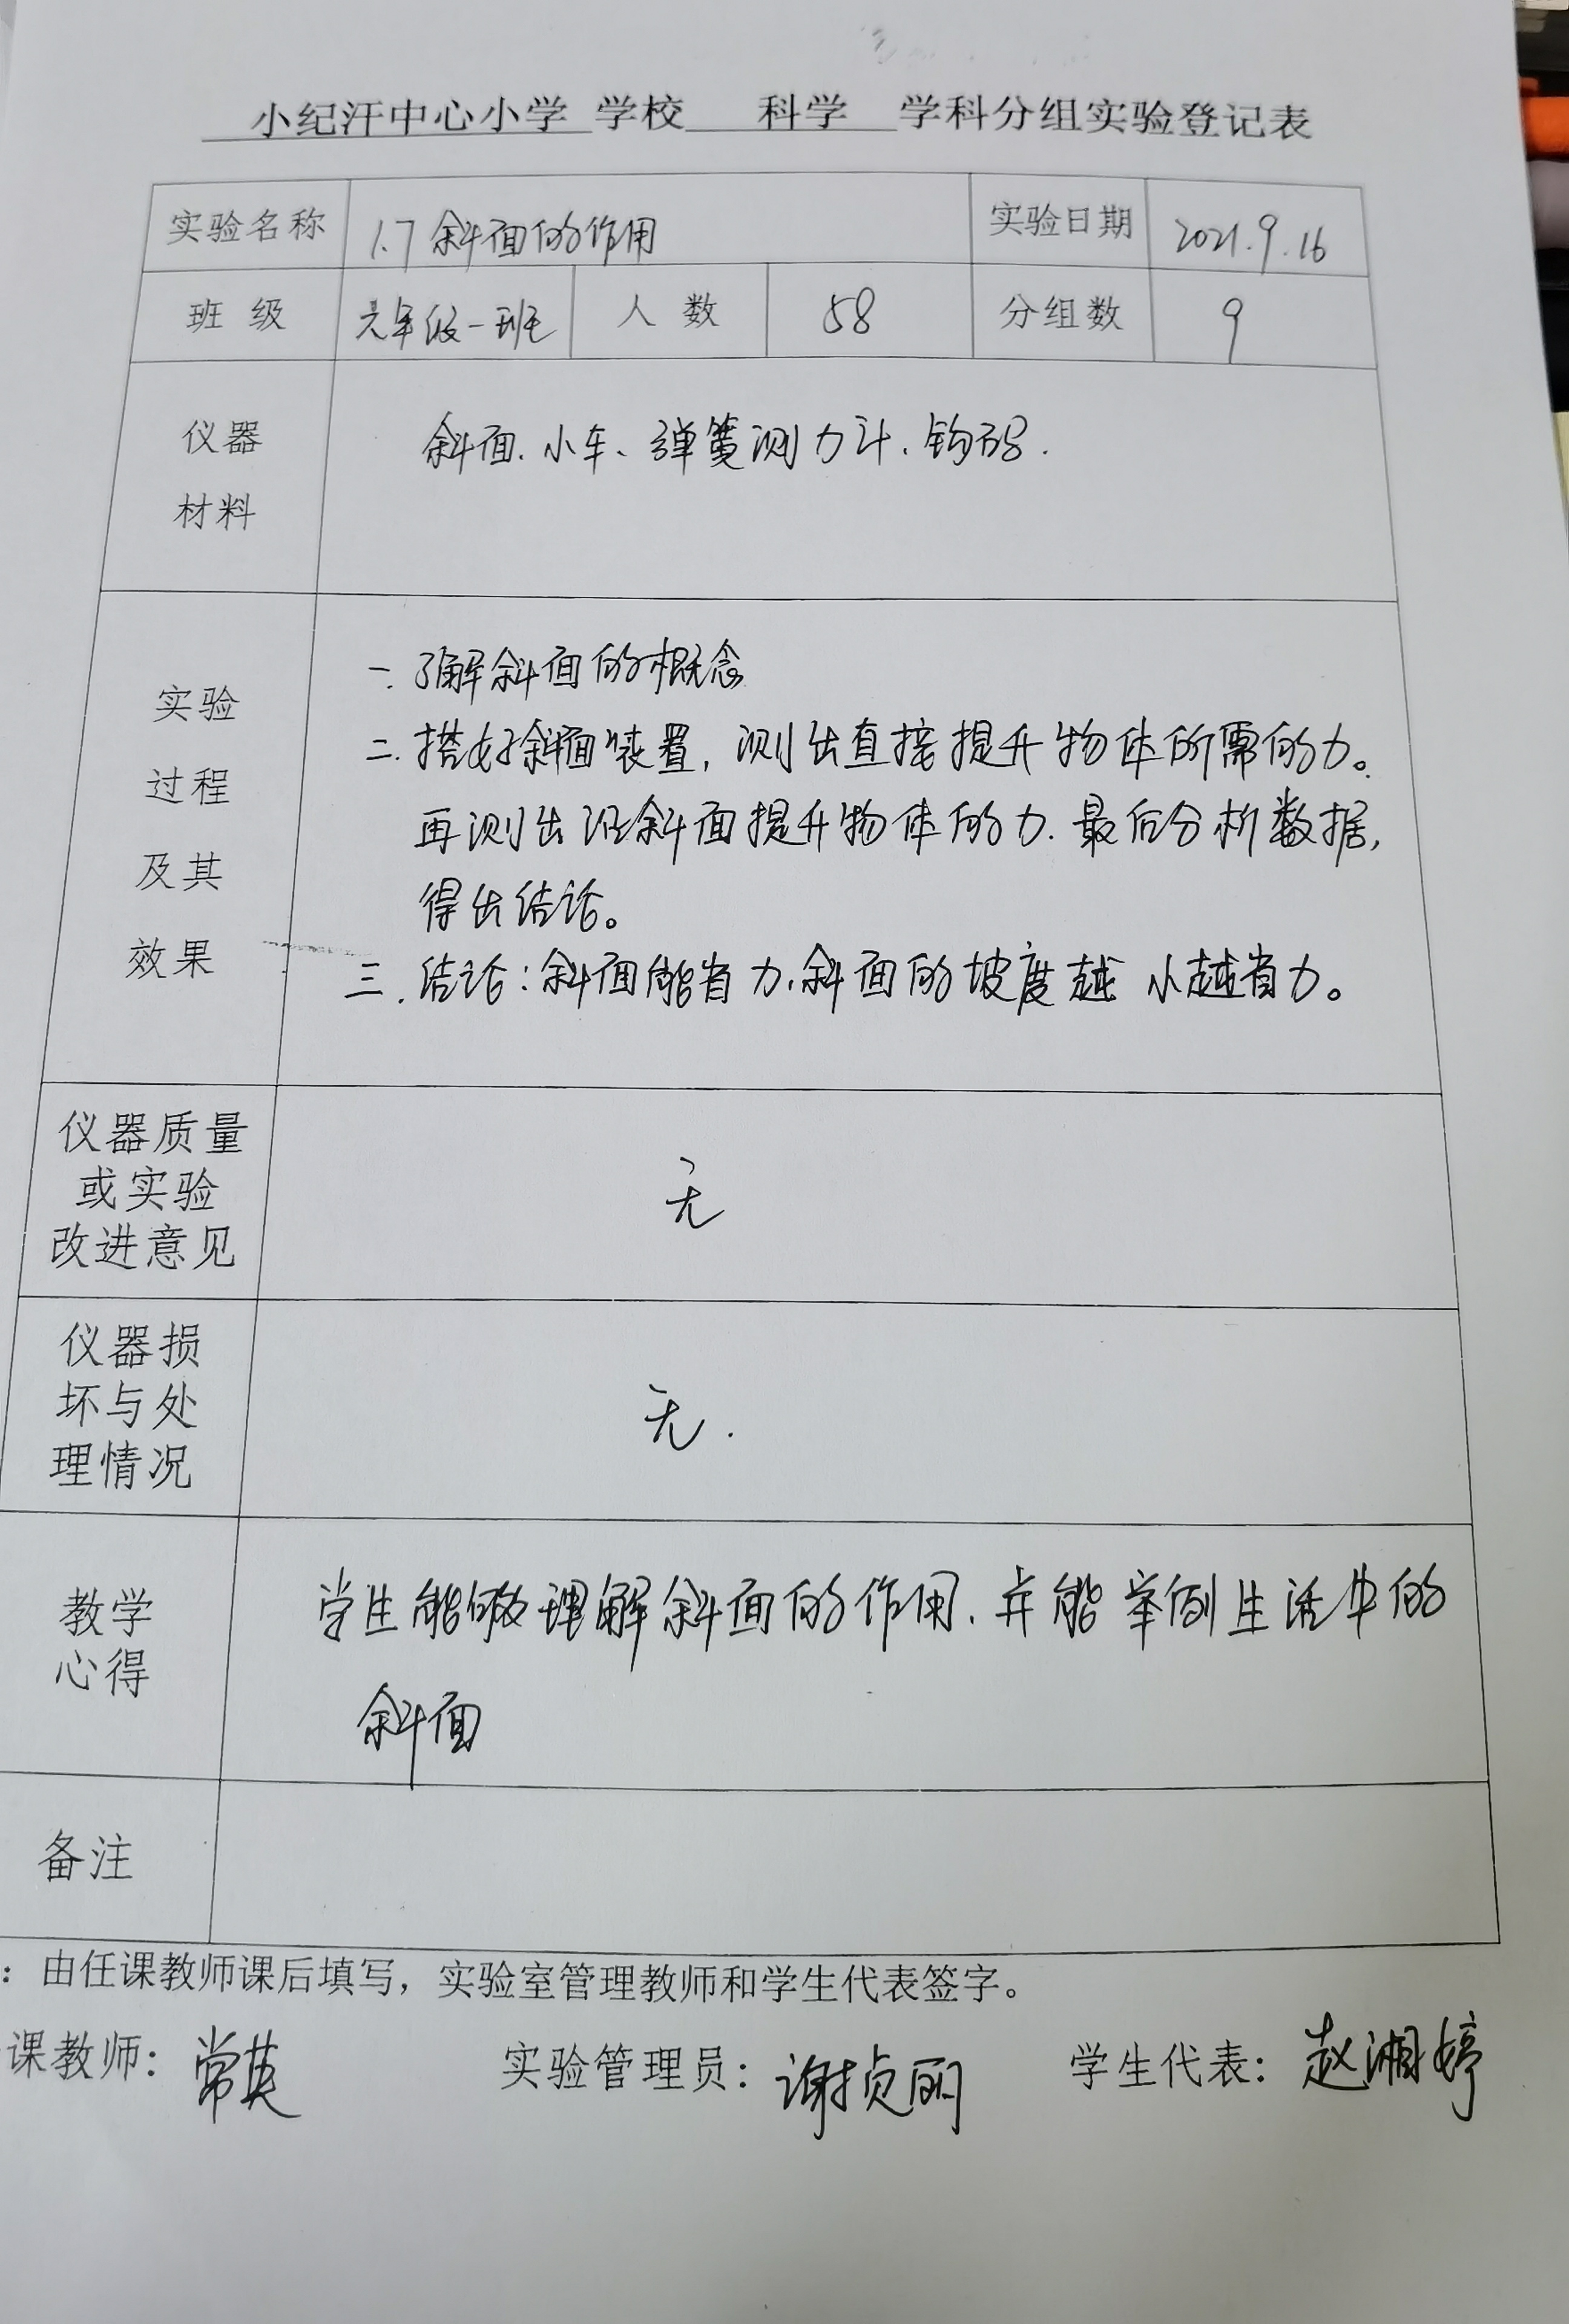 小纪汗中心小学 学校 科学 学科分组实验登记表
实验名称 1.7 斜面的作用 实验日期 2021.9.16
班 级 六年级一班 人 数 58 分组数 9
仪器
材料
斜面、小车、弹簧测力计、钩码.
实验
过程
及其
效果
一.了解斜面的概念
二.搭好斜面装置,测出直接提升物体所需的力。
再测出沿斜面提升物体的力.最后分析数据,
得出结论。
三.结论:斜面能省力,斜面的坡度越小越省力。
仪器质量
或实验
改进意见
无
仪器损
坏与处
理情况
无.
教学
心得
学生能够理解斜面的作用.并能举例生活中的
斜面
备注
:由任课教师课后填写,实验室管理教师和学生代表签字。
课教师: 常英 实验管理员: 谢贞丽 学生代表: 赵湘婷